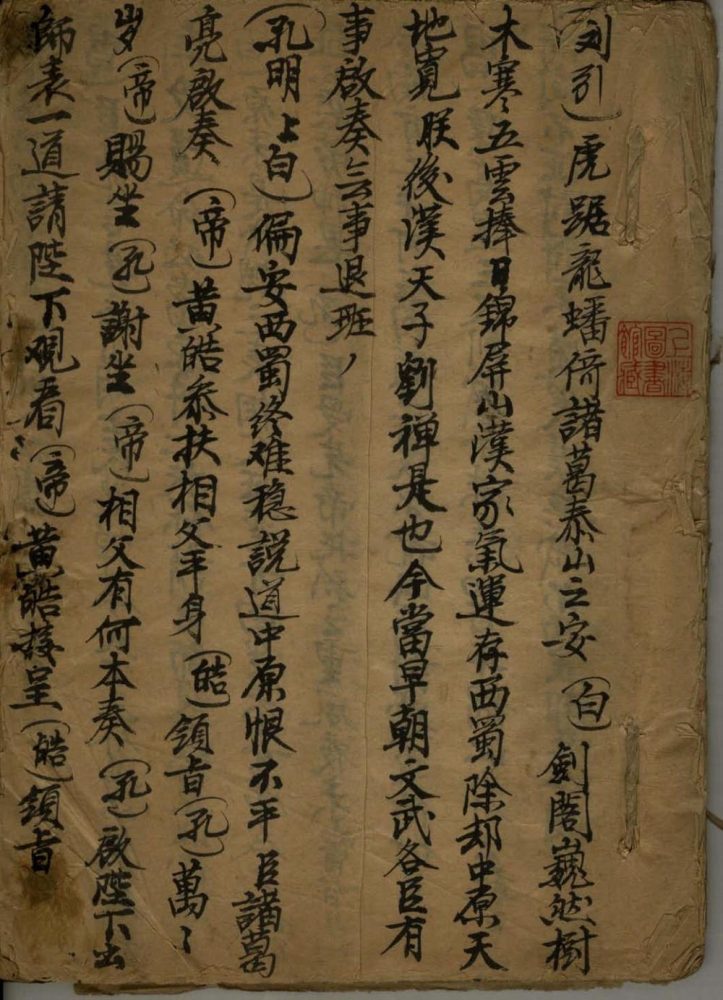 (刘引)虎踞龍蟠倚諸葛泰山之安(白)劍閣巍然樹
木寒五雲捧日錦屏山漢家氣運存西蜀除却中原天
地寬朕後漢天子劉禅是也今當早朝文武各臣有
事啟奏無事退班
(孔明上白)偏安西蜀终难稳説道中原恨不平臣諸葛
亮啟奏(帝)黄皓恭扶相父平身(皓)领旨(孔)萬〻
岁(帝)賜坐(孔)謝坐(帝)相父有何本奏(孔)啟陛下出
師表一道請陛下观看(帝)黄皓接呈(皓)领旨